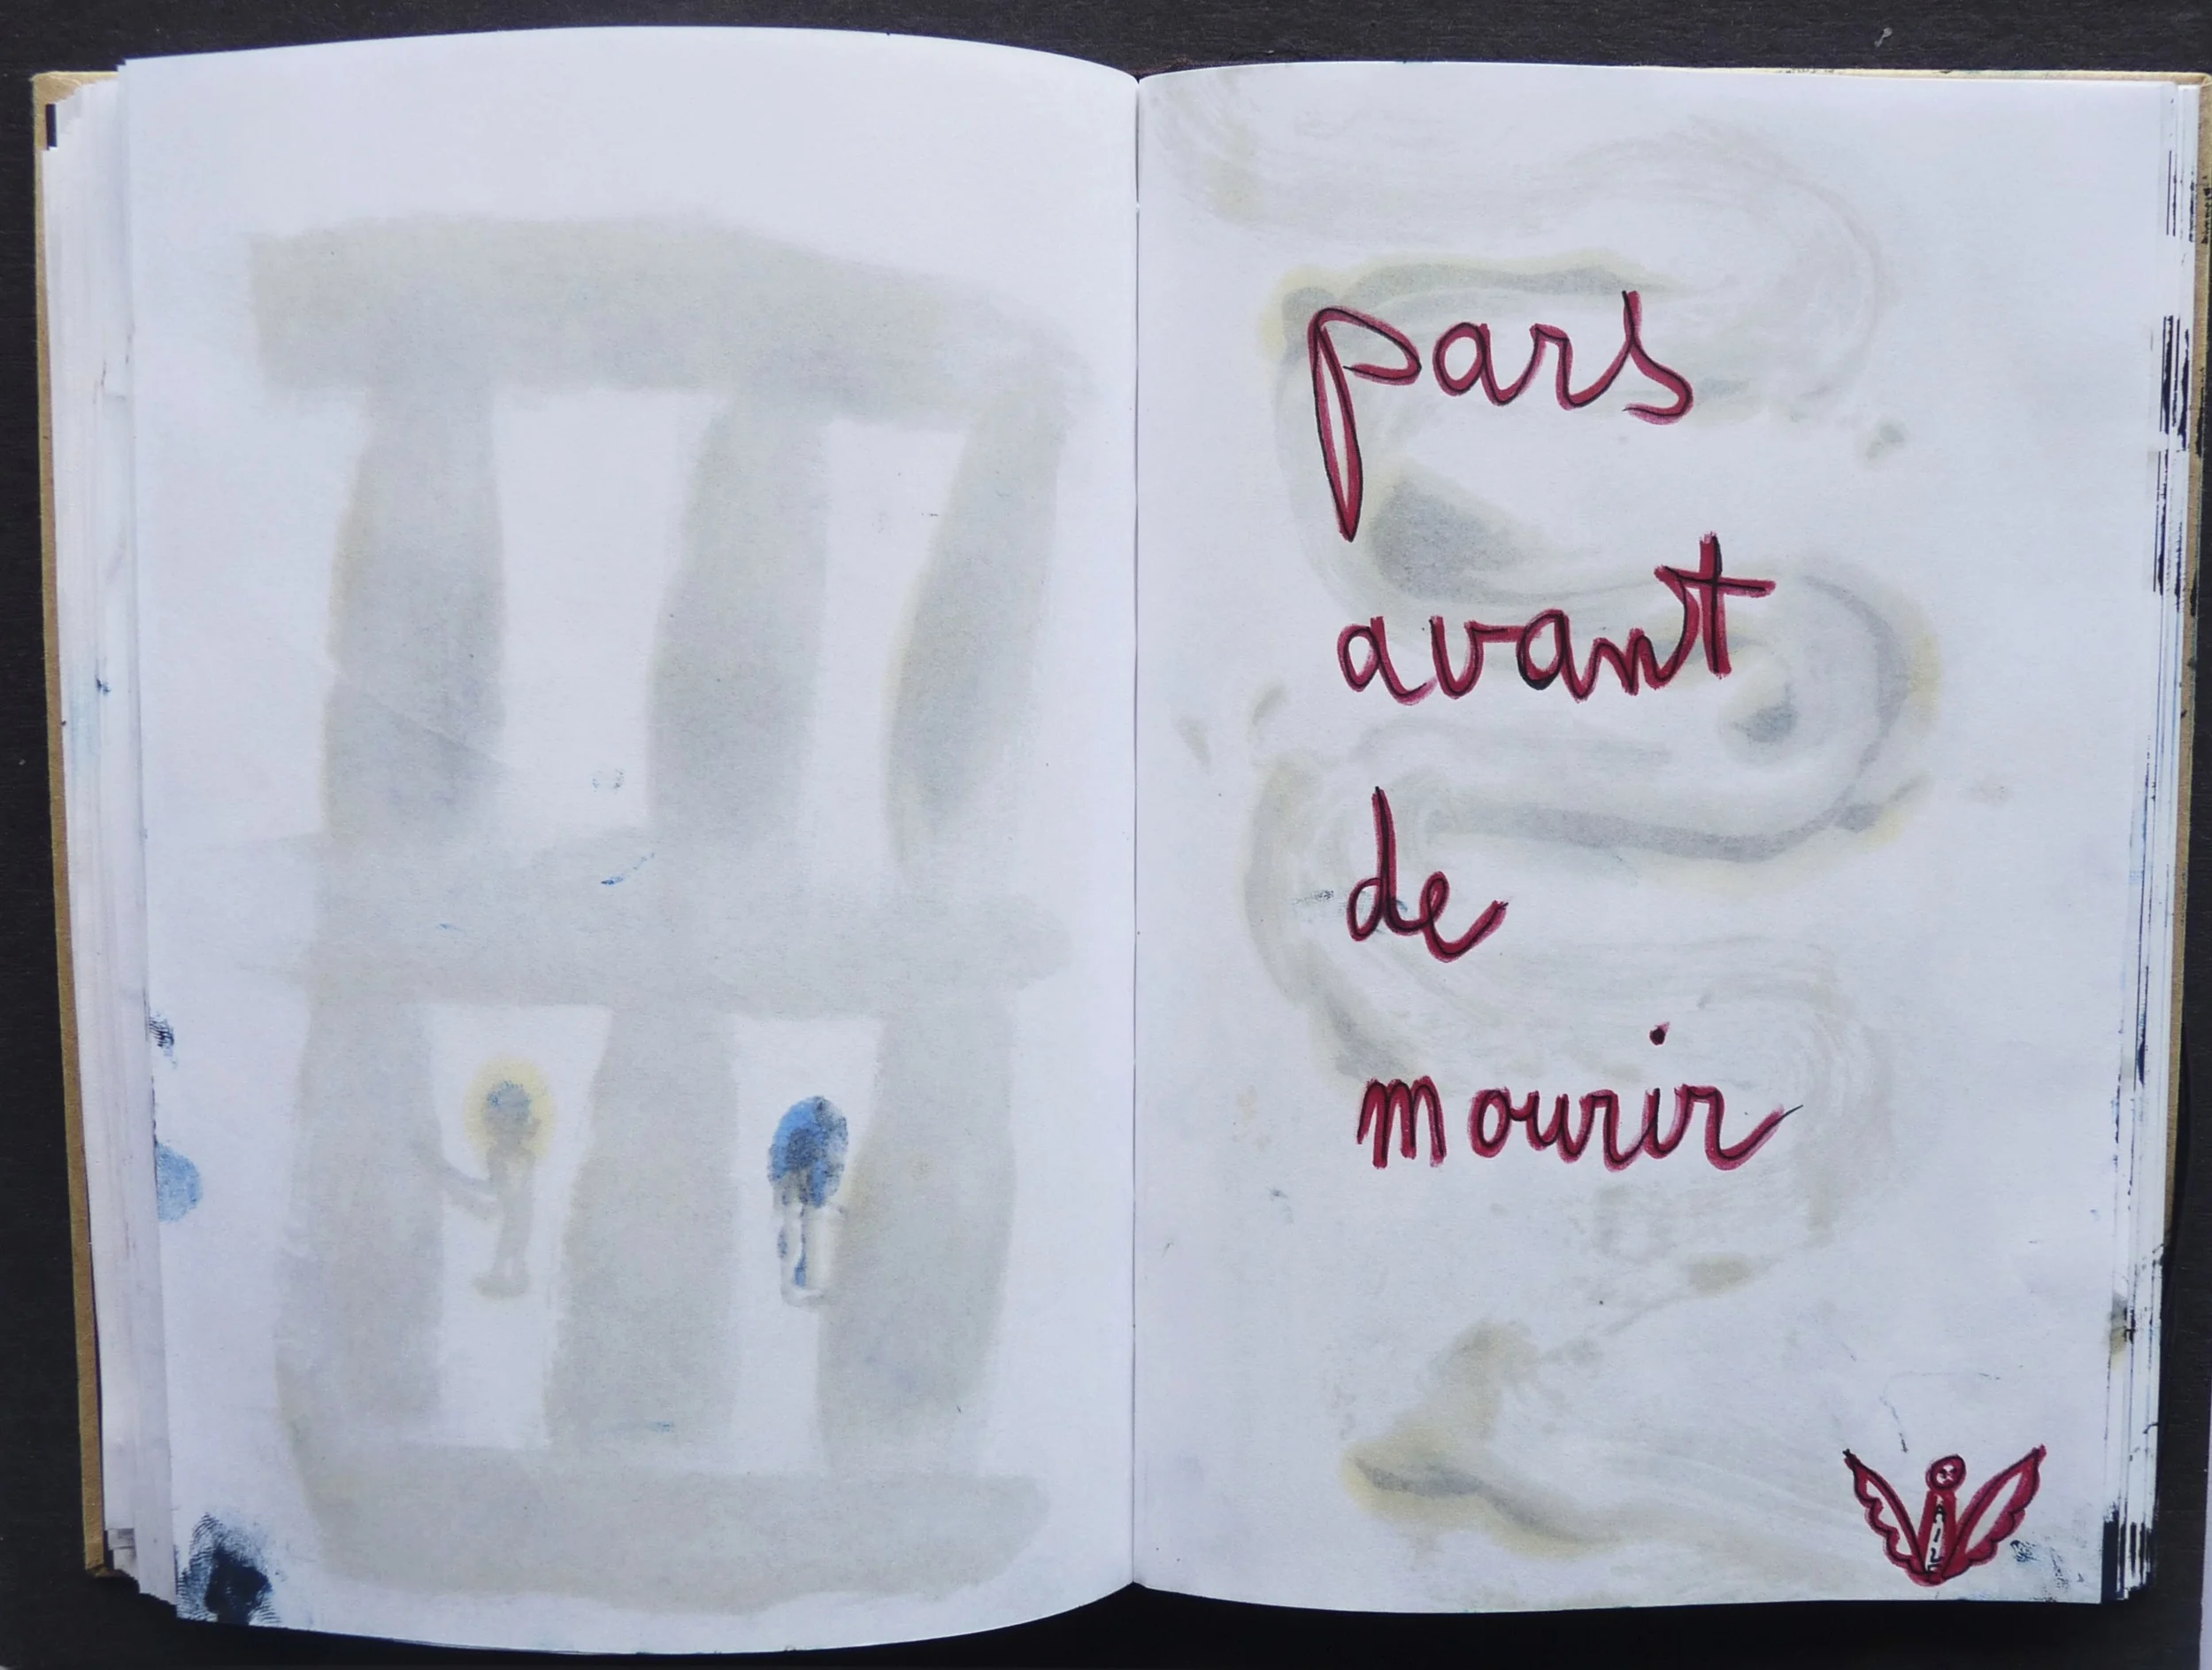 pars
avant
de
mourir